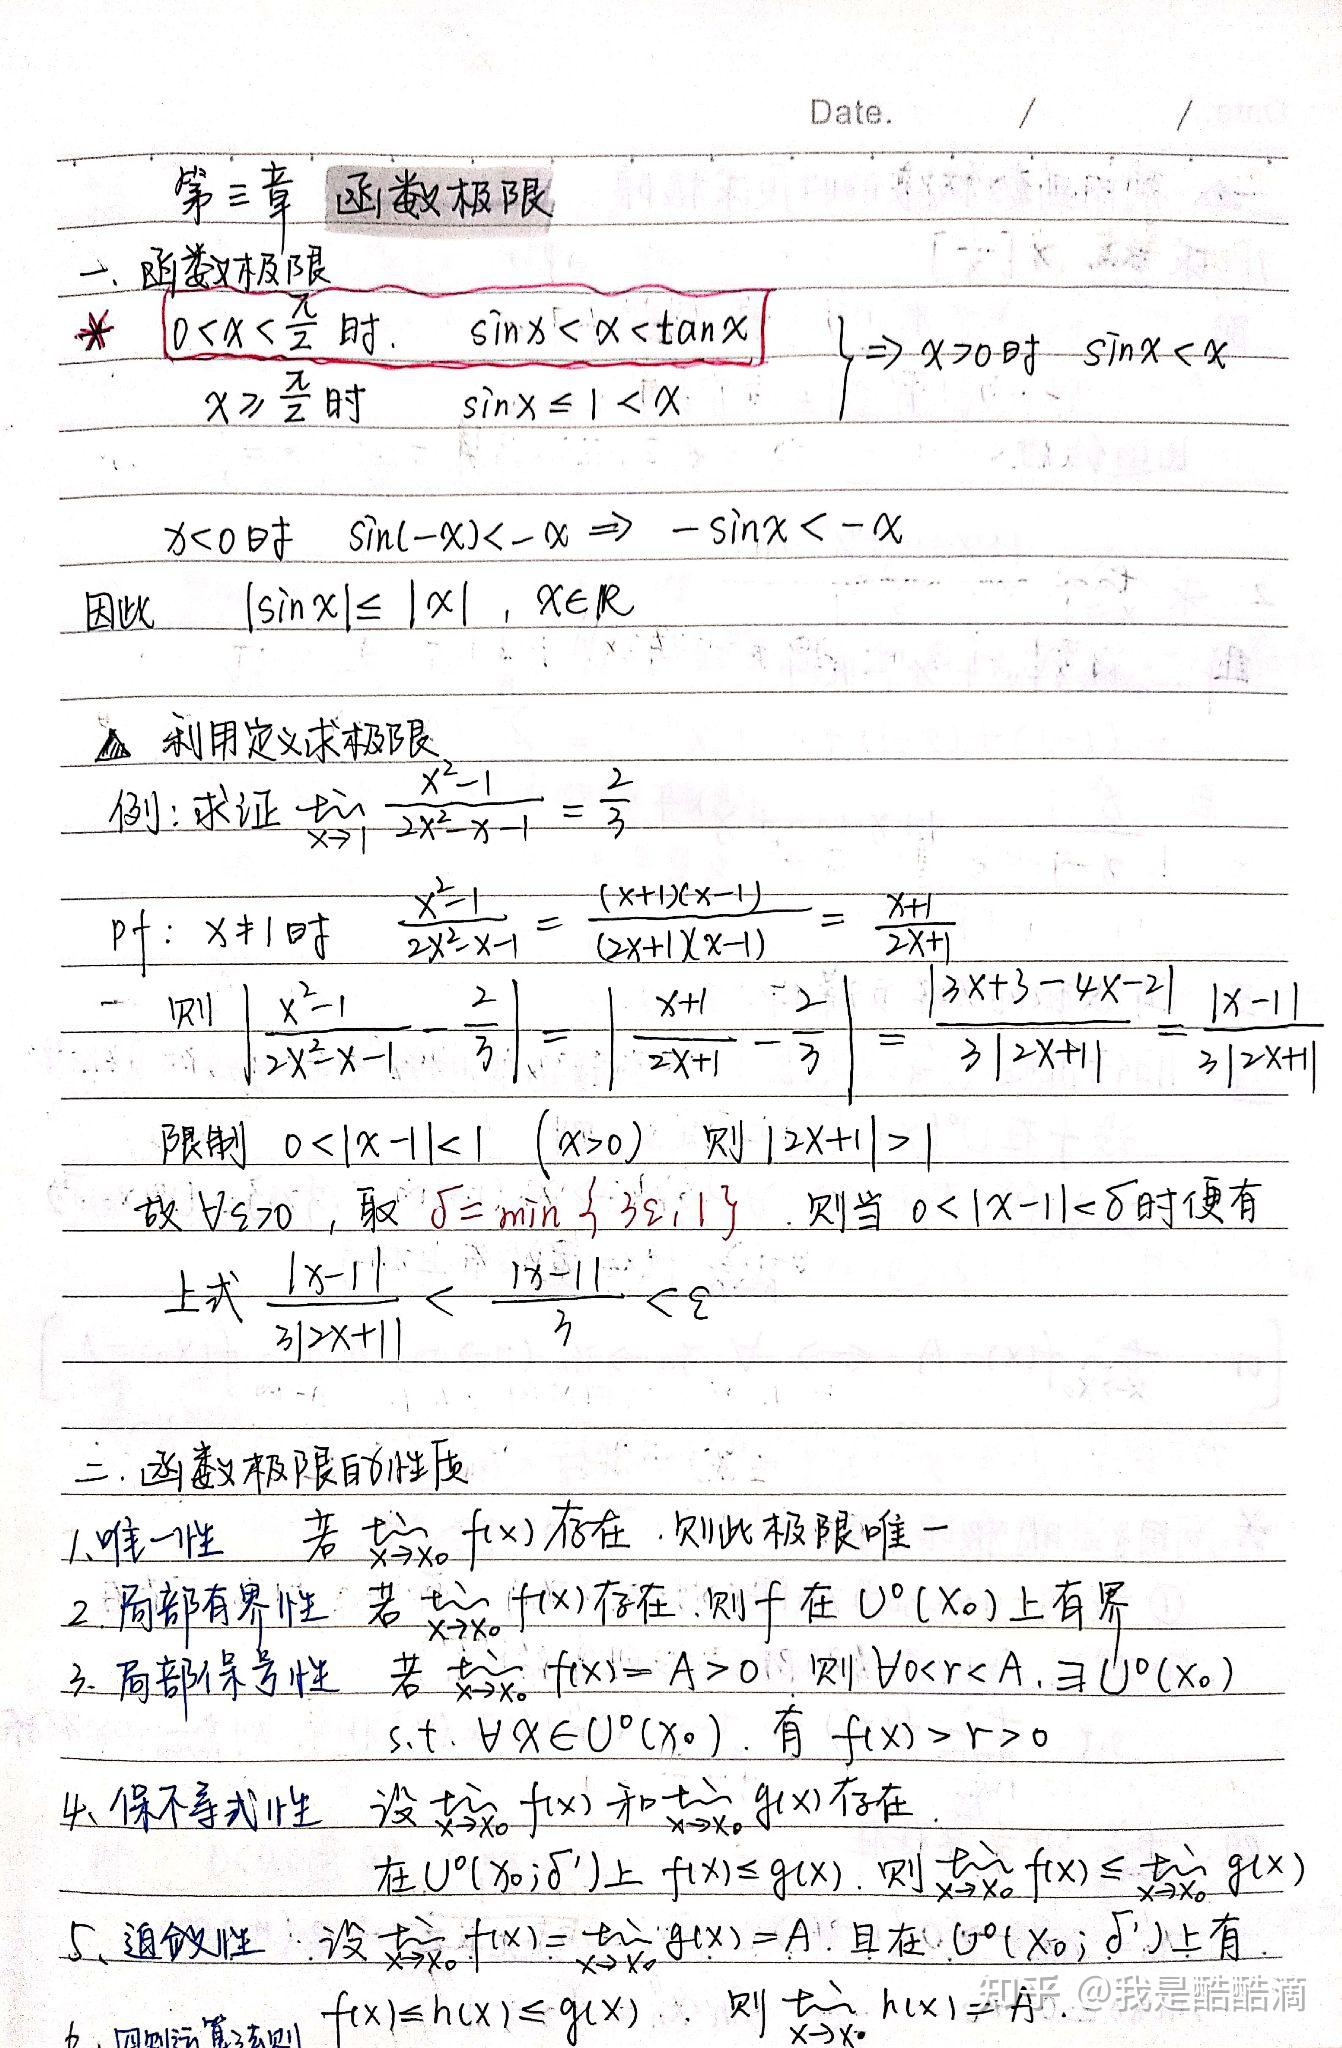 Date. / /
第三章 函数极限
一、函数极限
* 0<x<π/2 时. sinx<x<tanx
x≥π/2 时 sinx≤1<x } ⇒ x>0时 sinx<x
x<0时 sin(-x)<-x ⇒ -sinx<-x
因此 |sinx|≤|x| , x∈R
▲ 利用定义求极限
例:求证 lim x→1 (x²-1)/(2x²-x-1) = 2/3
pf: x≠1时 (x²-1)/(2x²-x-1) = (x+1)(x-1)/(2x+1)(x-1) = (x+1)/(2x+1)
则 |(x²-1)/(2x²-x-1) - 2/3| = |(x+1)/(2x+1) - 2/3| = |3x+3-4x-2|/3|2x+1| = |x-1|/3|2x+1|
限制 0<|x-1|<1 (x>0) 则 |2x+1|>1
故 ∀ε>0 , 取 δ=min{3ε,1} . 则当 0<|x-1|<δ时便有
上式 |x-1|/3|2x+1| < |x-1|/3 < ε
二.函数极限的性质
1、唯一性 若 lim x→x₀ f(x) 存在.则此极限唯一
2.局部有界性 若 lim x→x₀ f(x)存在.则f 在 U°(x₀)上有界
3.局部保号性 若 lim x→x₀ f(x)=A>0 则 ∀0<r<A.∃U°(x₀)
s.t. ∀x∈U°(x₀). 有 f(x)>r>0
4、保不等式性 设 lim x→x₀ f(x) 和 lim x→x₀ g(x)存在.
在U°(x₀;δ')上 f(x)≤g(x). 则 lim x→x₀ f(x)≤ lim x→x₀ g(x)
5、迫敛性 设 lim x→x₀ f(x)= lim x→x₀ g(x)=A.且在 U°(x₀;δ')上有
f(x)≤h(x)≤g(x). 则 lim x→x₀ h(x)=A.
知乎 @我是酷酷滴
6、四则运算法则